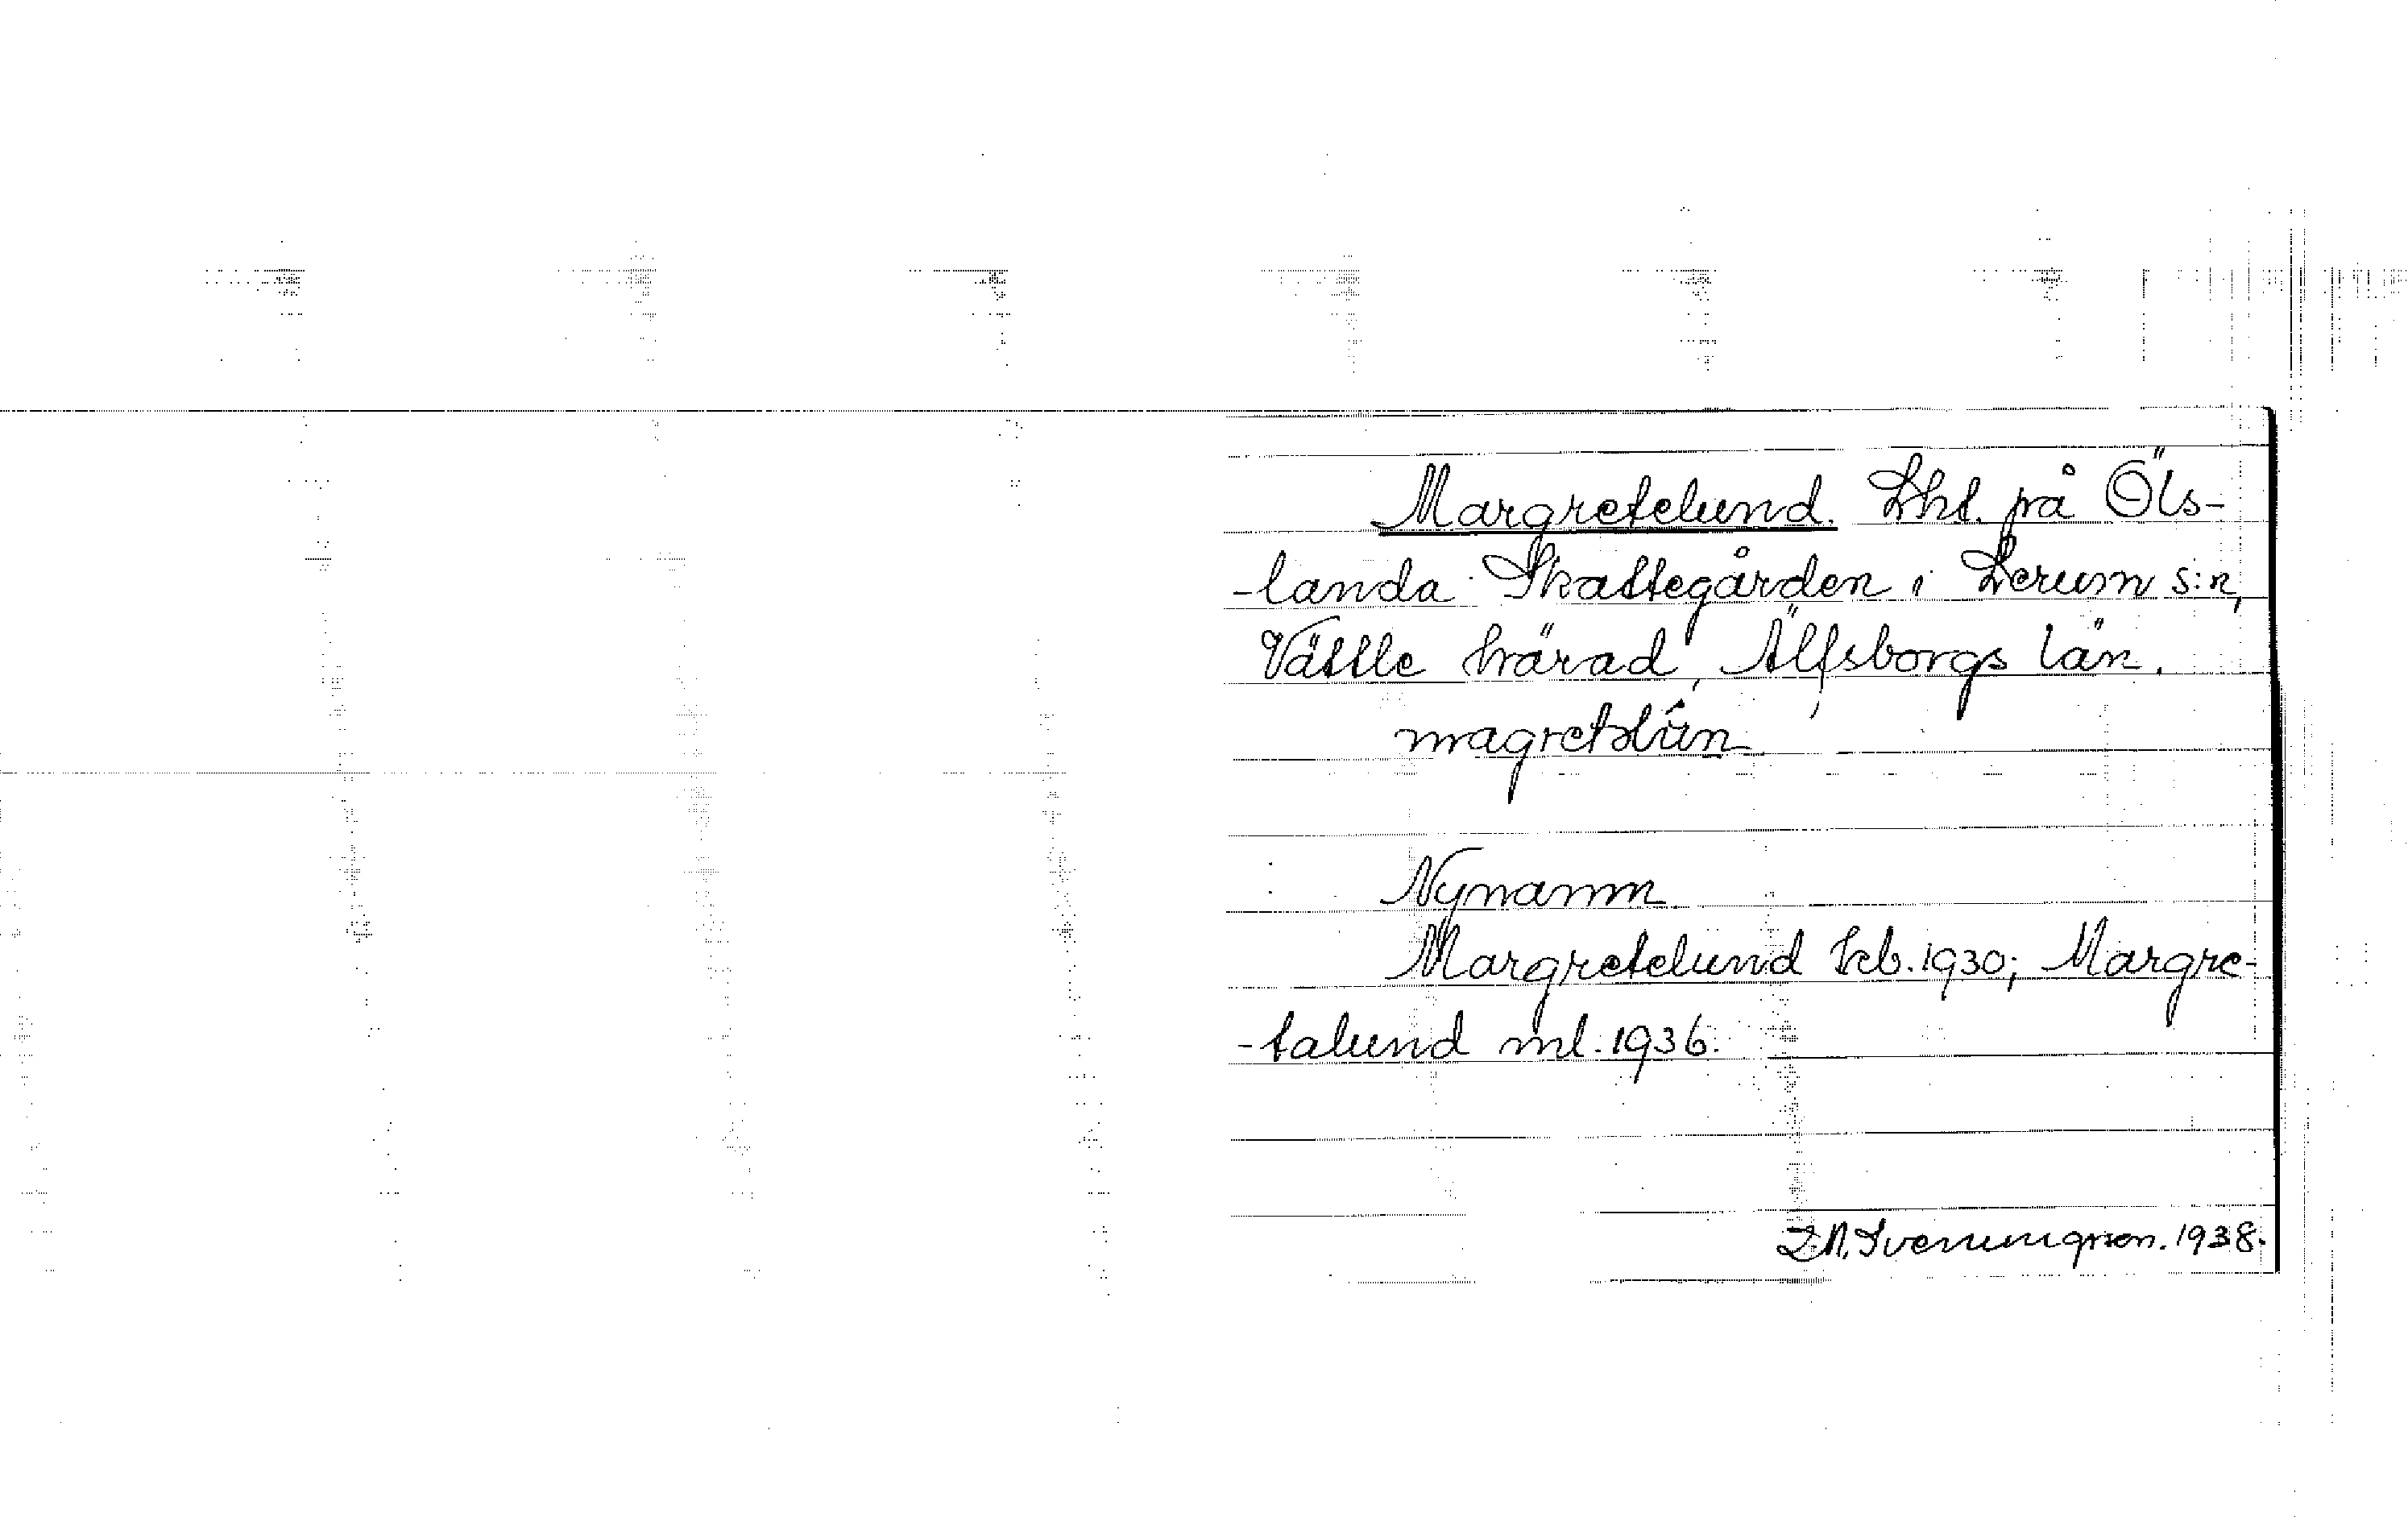 Margretelund. Lht. på Öls-
-landa Skattegården i Lerum s:n,
Vättle härad, Älfsborgs län.
magretəlún
Nynamn
Margretelund kb. 1930; Margre-
-talund ml. 1936.
1938.